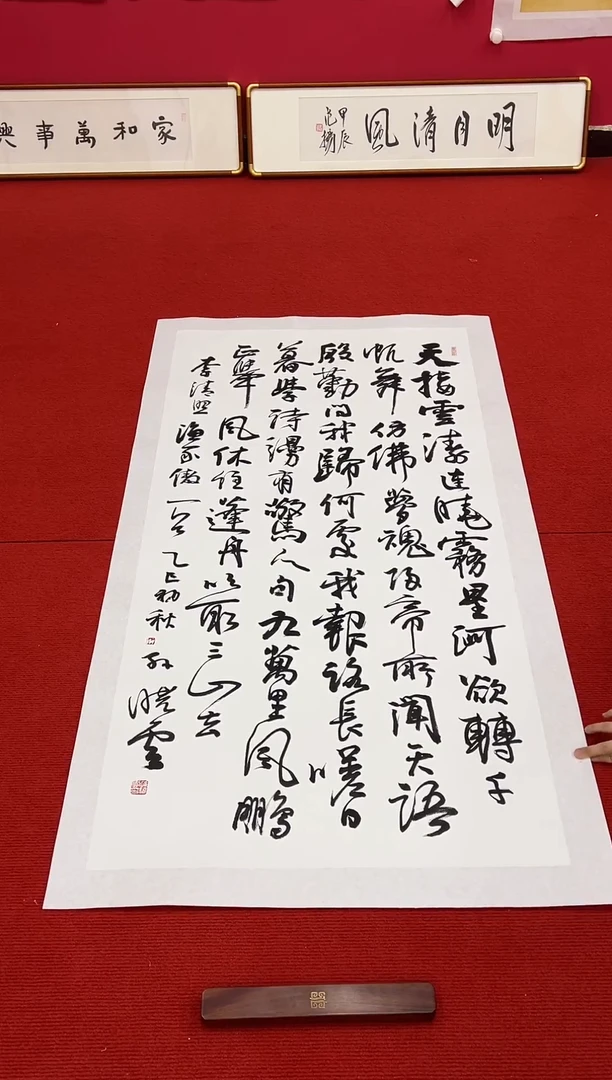 家和萬事興
明月清風
甲辰
天接雲濤連曉霧星河欲轉千
帆舞仿佛夢魂歸帝所聞天語
殷勤問我歸何處我報路長嗟日
暮學詩謾有驚人句九萬里風鵬
正舉風休住蓬舟吹取三山去
李清照漁家傲一首乙巳初秋孫曉雲